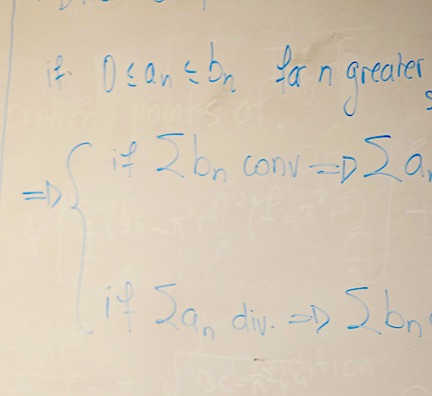 if 0 ≤ an ≤ bn for n greater
⇒ { if Σ bn conv ⇒ Σ an
if Σ an div. ⇒ Σ bn